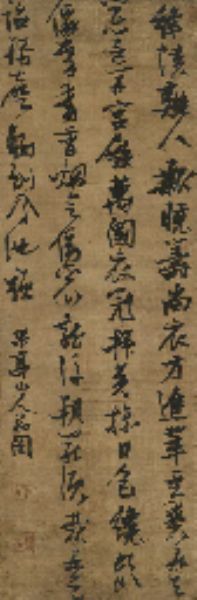 絳幘雞人報曉籌尚衣方進翠雲裘九天
閶闔開宮殿萬國衣冠拜冕旒日色纔臨
仙掌動香煙欲傍袞龍浮朝罷須裁五色
詔珮聲歸到鳳池頭
山人